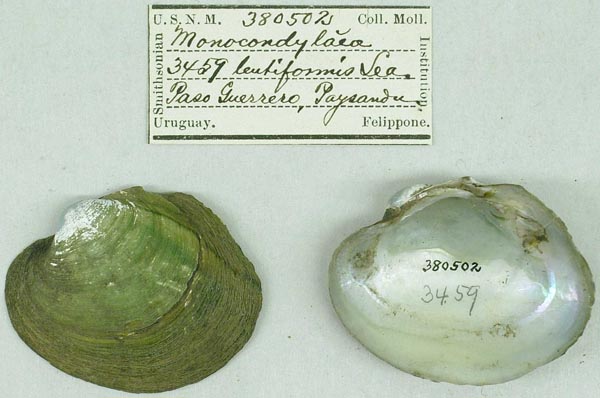 U.S.N.M. 380502 Coll. Moll.
Monocondylaea
3459 lentiformis Lea.
Paso Guerrero, Paysandu,
Uruguay. Felippone.
Smithsonian
Institution.
380502
3459